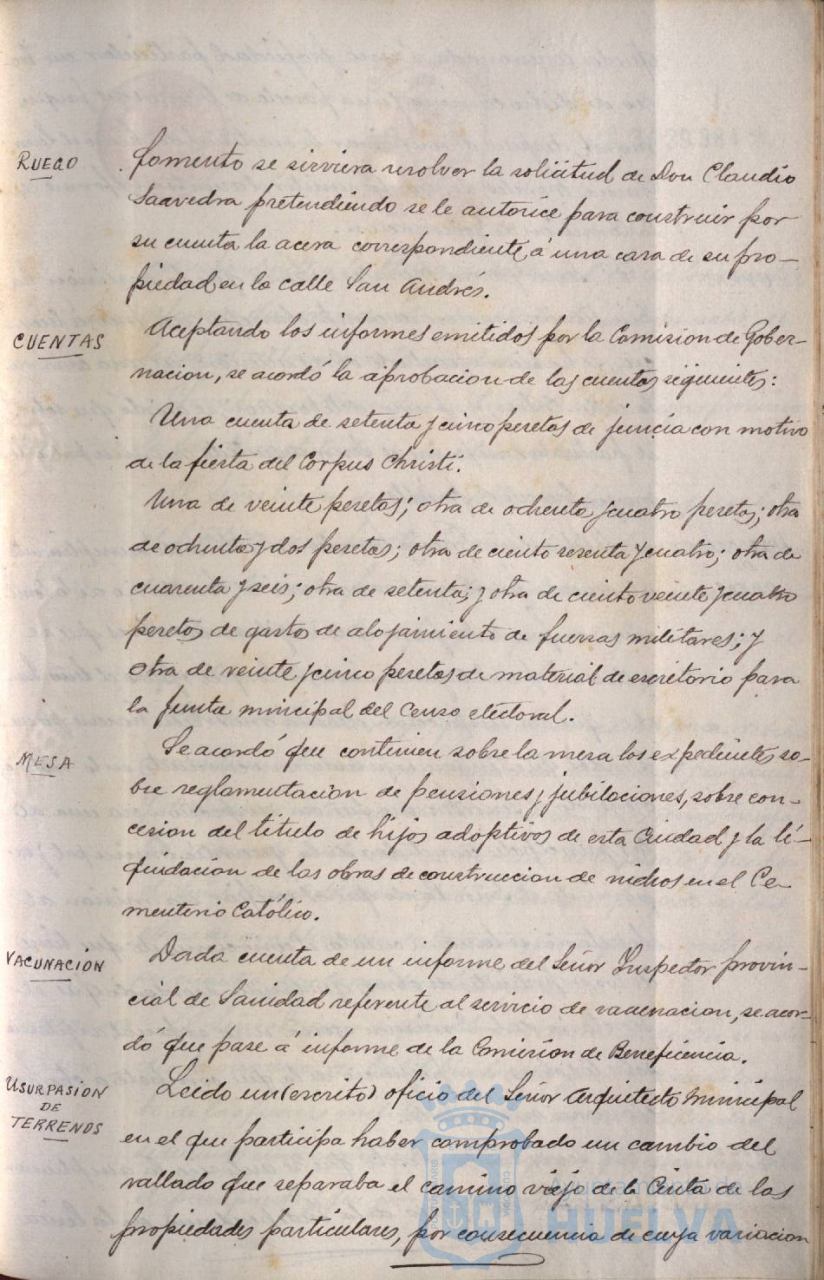 RUEGO
fomento se sirviera resolver la solicitud de Don Claudio
Saavedra pretendiendo se le autorice para construir por
su cuenta la acera correspondiente á una casa de su pro-
piedad en la calle San Andrés.
CUENTAS
Aceptando los informes emitidos por la Comision de Gober-
nacion, se acordó la aprobacion de las cuentas siguientes:
Una cuenta de setenta y cinco pesetas de juncia con motivo
de la fiesta del Corpus Christi.
Una de veinte pesetas; otra de ochenta y cuatro pesetas; otra
de ochenta y dos pesetas; otra de ciento sesenta y cuatro; otra de
cuarenta y seis; otra de setenta; y otra de ciento veinte y cuatro
pesetas de gastos de alojamiento de fuerzas militares; y
otra de veinte y cinco pesetas de material de escritorio para
la Junta municipal del Censo electoral.
MESA
Se acordó que continuen sobre la mesa los expedientes so-
bre reglamentacion de pensiones y jubilaciones, sobre con-
cesion del título de hijos adoptivos de esta Ciudad y la li-
quidacion de las obras de construccion de nichos en el Ce-
menterio Católico.
VACUNACIÓN
Dada cuenta de un informe del Señor Inspector provin-
cial de Sanidad referente al servicio de vacunacion, se acor-
dó que pase á informe de la Comision de Beneficencia.
USURPASIÓN
DE
TERRENOS
Leido un (escrito) oficio del Señor Arquitecto municipal
en el que participa haber comprobado un cambio del
vallado que separaba el camino viejo de la Cinta de las
propiedades particulares, por consecuencia de cuya variacion
HUELVA